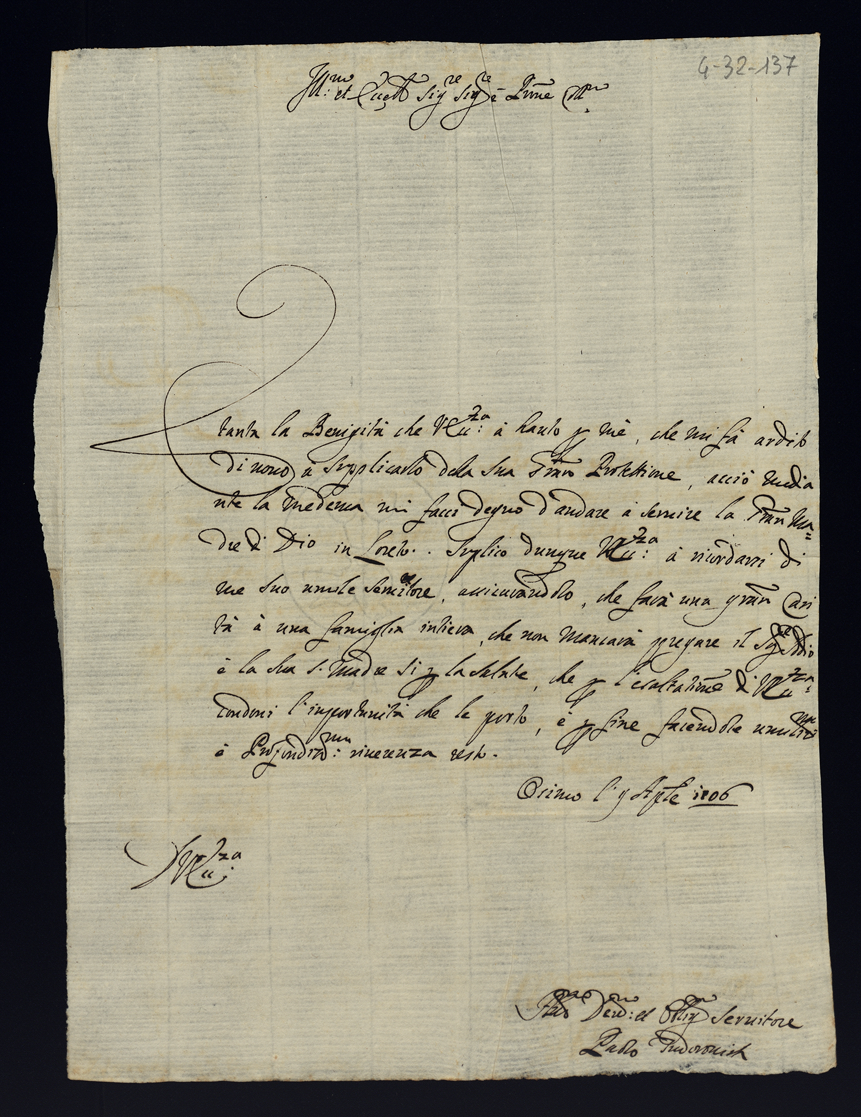 4-32-137
Ill:mo et Ecc:mo Sig:re Sig:re è Prone
tanta la Benigità che V Ecc:za à hauto p mè, che mi fà ardito
di novo à supplicarlo dela sua Gran Protetione, acciò media
nte la medema mi facci degno d'andare à servire la Gran Ma=
dre di Dio in Loreto. Suplico dunque V Ecc:za à ricordarsi di
me suo umile servitore, assicurandolo, che farà una gran Cari
tà à una famiglia intiera, che non mancarà pregare il Sig:re Iddio
è la sua S. Madre si p la salute, che p l'esaltatione di V Ecc:za
condoni l'inportunità che le porto, è p fine facendole umiliss:ma
è Profondiss:ma riverenza resto.
Osimo li 9 Aple 1706
D V Ecc:za
Dev:mo et Obbl:mo Servitore
Paolo